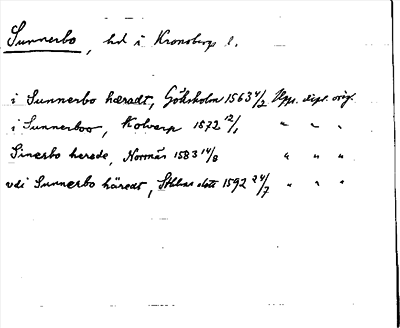 Sunnerbo, hd i Kronobergs l.
i Sunnerbo hæradt, Göksholm 1563 4/2 Upps. dipl. orig.
i Sunnerboo, Kolverp 1572 12/1 " " "
Sinerbo herede, Norrnäs 1583 14/8 " " "
vdi Sunnerbo häredt, Sthlms slott 1592 24/7 " " "